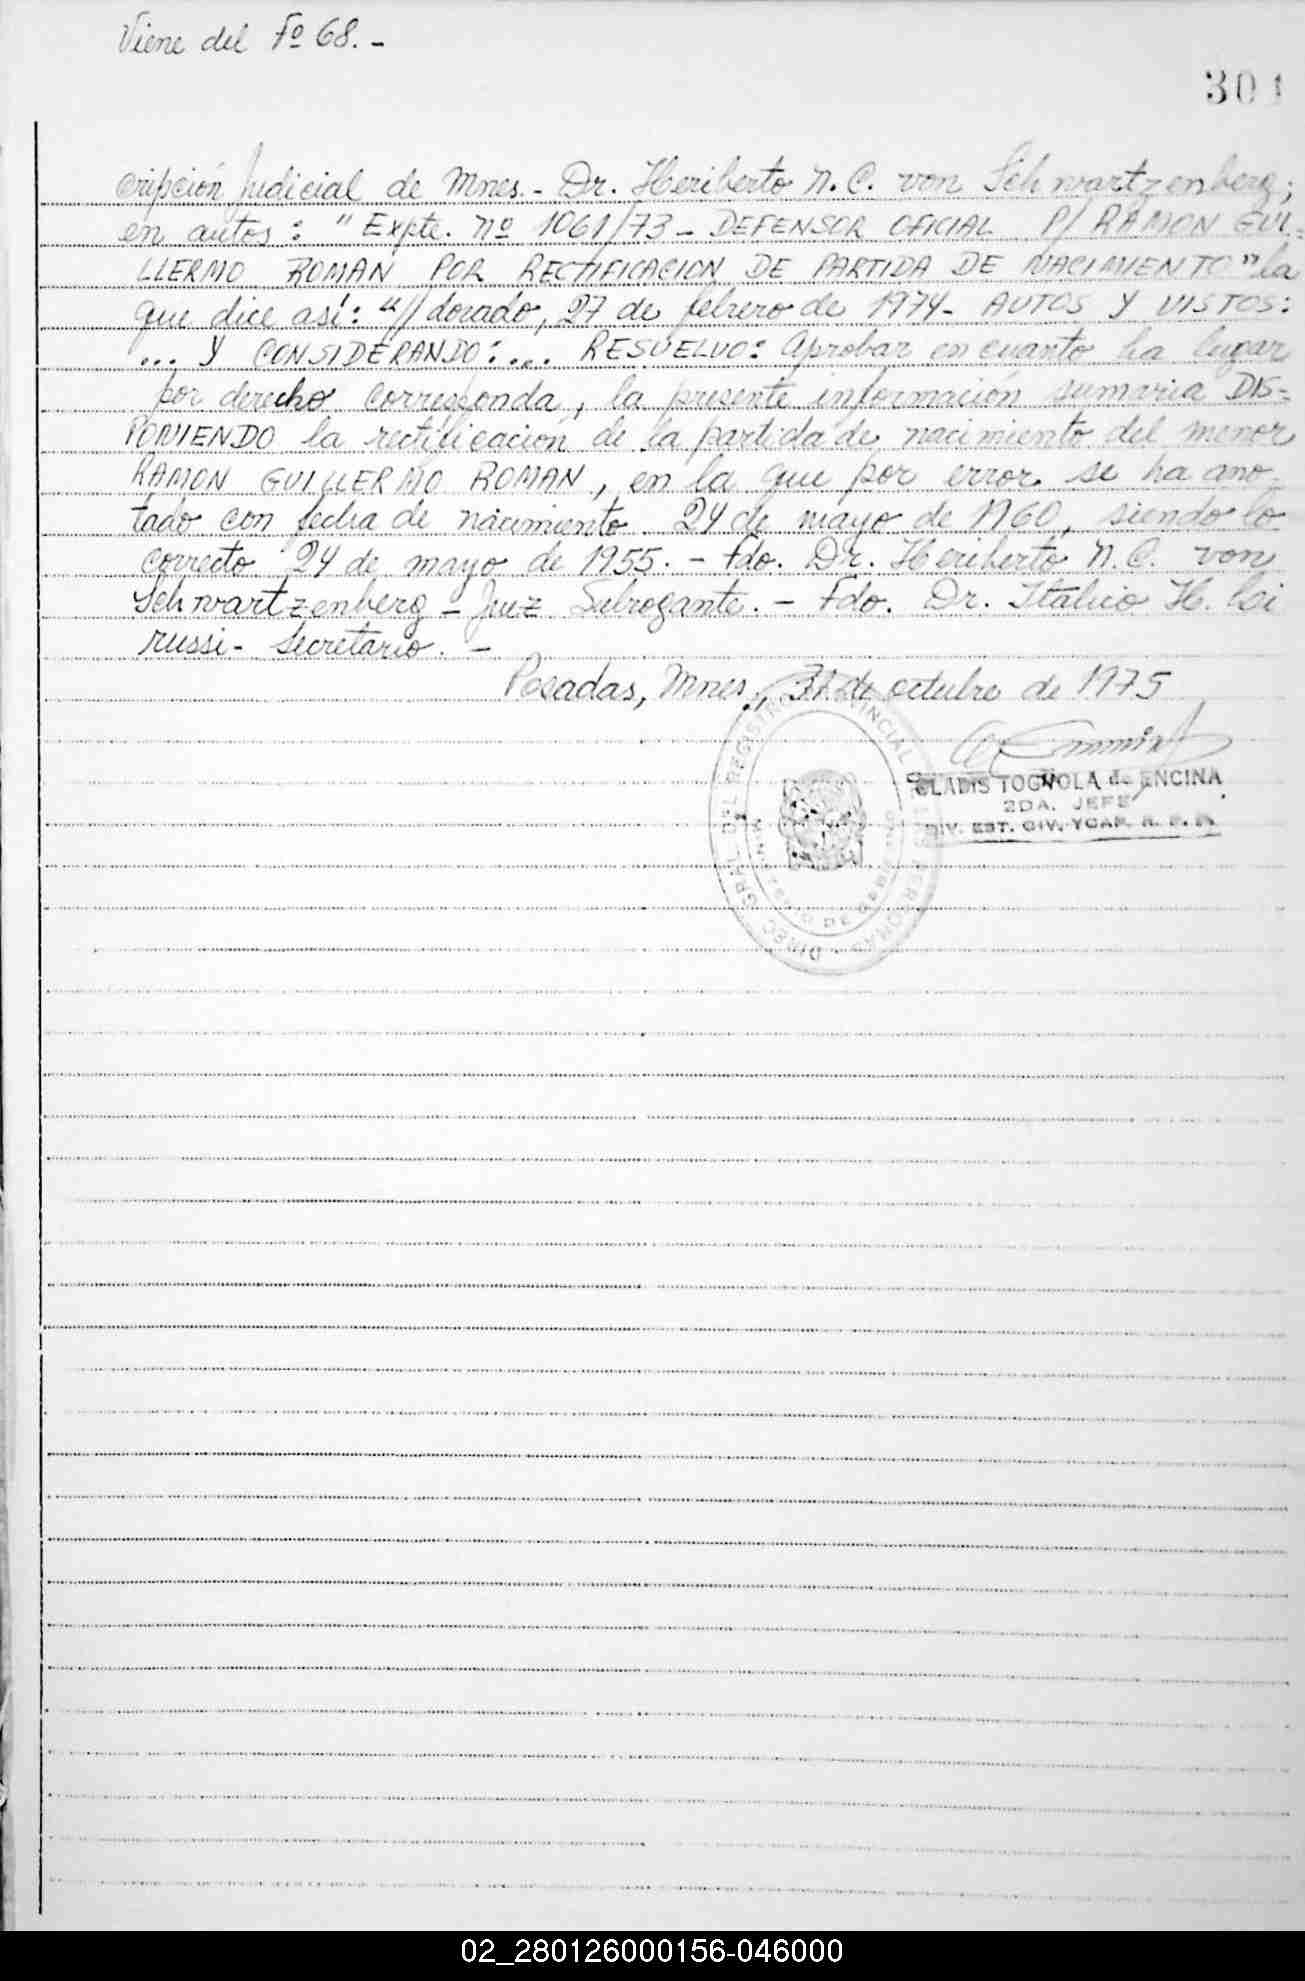 Viene del Fº 68.-
301
cripción Judicial de Mnes.- Dr. Heriberto N. C. von Schwartzenberg;
en autos: "Expte. Nº 1061/73 - DEFENSOR OFICIAL P/ RAMON GUI-
LLERMO ROMAN POR RECTIFICACION DE PARTIDA DE NACIMIENTO" la
que dice así: "//dorado, 27 de febrero de 1974- AUTOS Y VISTOS:
... Y CONSIDERANDO:... RESUELVO: Aprobar en cuanto ha lugar
por derecho corresponda, la presente información sumaria DIS-
PONIENDO la rectificación de la partida de nacimiento del menor
RAMON GUILLERMO ROMAN, en la que por error se ha ano-
tado con fecha de nacimiento 24 de mayo de 1960, siendo lo
correcto 24 de mayo de 1955. - Fdo. Dr. Heriberto N. C. von
Schwartzenberg - Juez Subrogante. - Fdo. Dr. Italico H.
russi - Secretario. -
Posadas, Mnes., 31 de octubre de 1975
GLADIS TOGNOLA de ENCINA
2DA. JEFE
DIV. EST. CIV. YCAP. R. P. P.
DIREC. GRAL. DEL REGISTRO PROVINCIAL DE LAS PERSONAS
02_280126000156-046000